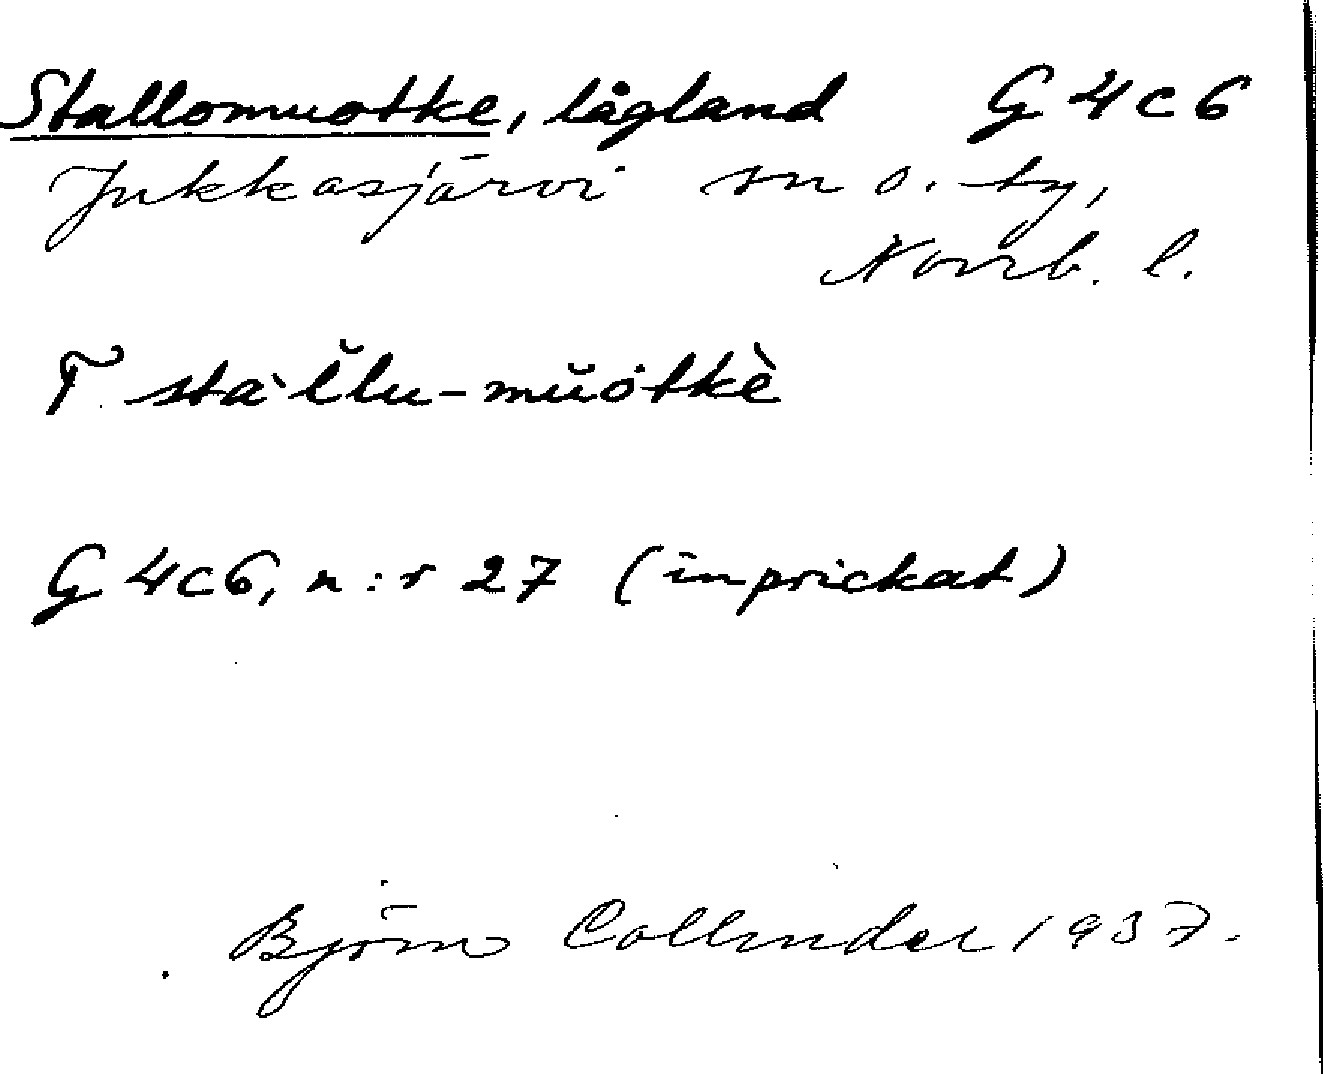 Stallomuotke, lågland G 4 c 6
Jukkasjärvi sn o. tg,
Norrb. l.
T stàl̆lu-mŭȯtkè
G 4c6, n:r 27 (inprickat)
Björn Collinder 1937.